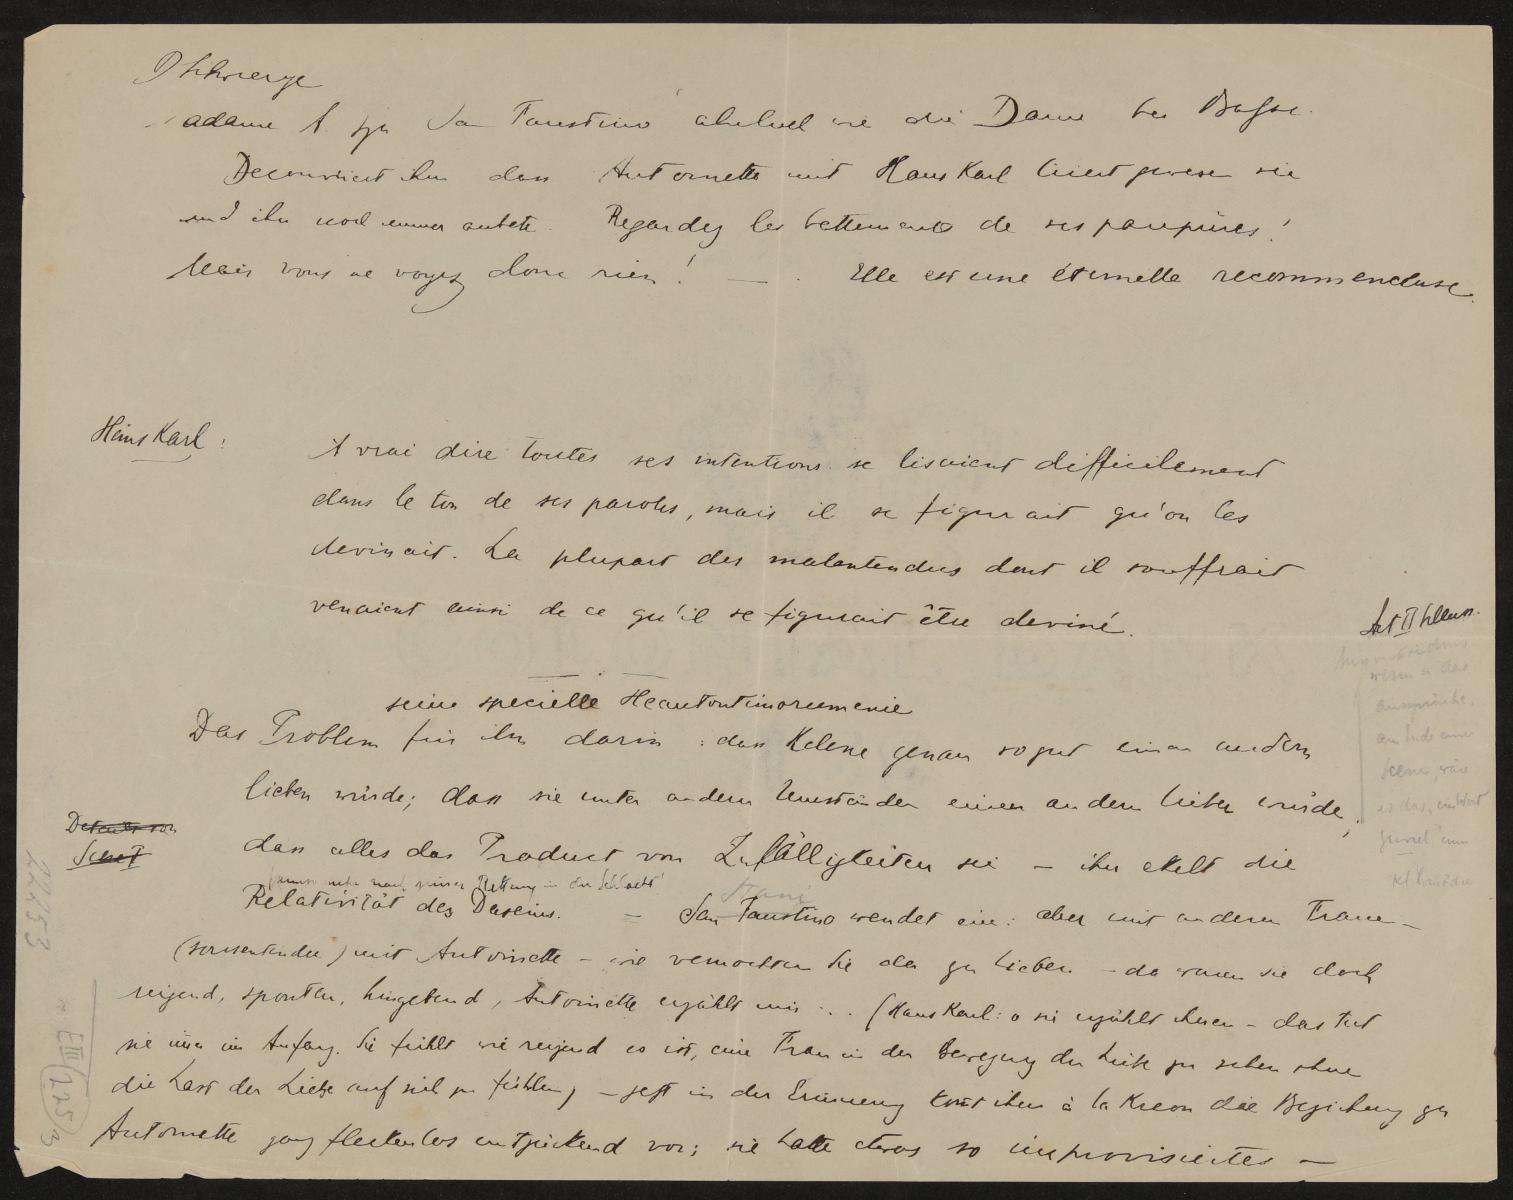 adame A. zu San Faustino ähnlich wie die Dame bei Basse.
Decouvriert ihm dass Antoinette mit Hans Karl liiert gewesen sei
und ihn noch immer anbete. Regardez les battements de ses paupières!
Mais vous ne voyez donc rien! — . Elle est une éternelle recommenceuse.
Hans Karl:
A vrai dire toutes ses intentions se lisaient difficilement
dans le ton de ses paroles, mais il se figurait qu'on les
devinait. La plupart des malentendus dont il souffrait
venaient ainsi de ce qu'il se figurait être deviné.
Act II
seine specielle Heautontimorumenie
Das Problem für ihn darin: dass Helene genau so gut einen andern
lieben würde; dass sie unter andern Umständen einen andern lieben würde,
dass alles das Product von Zufälligkeiten sei — ihn ekelt die
nach seiner Rettung in der Schlacht
Relativität des Daseins. — Stani
San Faustino wendet ein: aber mit anderen Frauen —
mit Antoinette — wie vermochten Sie da zu lieben — da waren sie doch
reizend, spontan, hingebend, Antoinette erzählt mir ... (Hans Karl: o sie erzählt Ihnen — das tut
sie immer im Anfang. Sie fühlt wie reizend es ist, eine Frau in der Bewegung der Liebe zu sehen ohne
die Last der Liebe auf sich zu fühlen) — jetzt in der Erinnerung kommt ihm à la Kreon die Beziehung zu
Antoinette ganz fleckenlos entzückend vor; sie hatte etwas so improvisiertes —
E III 225/3